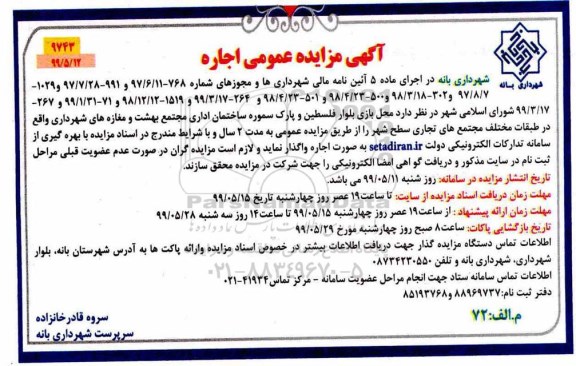 آگهی مزایده عمومی اجاره
۹۷۴۳
۹۹/۵/۱۲
شهرداری بانه
شهرداری بانه در اجرای ماده ۵ آئین نامه مالی شهرداری ها و مجوزهای شماره ۷۶۸-۹۷/۶/۱۱ و ۹۹۱-۹۷/۷/۲۸ و ۱۰۲۹-
۹۷/۸/۷ و ۳۰۲-۹۸/۳/۱۸ و ۵۰۰-۹۸/۴/۲۳ و ۵۰۱-۹۸/۴/۲۳ و ۲۶۴-۹۹/۳/۱۷ و ۱۵۱۹-۹۸/۱۲/۱۲ و ۷۱-۹۹/۱/۳۱ و ۲۶۷-
۹۹/۳/۱۷ شورای اسلامی شهر در نظر دارد محل بازی بلوار فلسطین و پارک سموره ساختمان اداری مجتمع بهشت و مغازه های شهرداری واقع
در طبقات مختلف مجتمع های تجاری سطح شهر را از طریق مزایده عمومی به مدت ۲ سال و با شرایط مندرج در اسناد مزایده با بهره گیری از
سامانه تدارکات الکترونیکی دولت setadiran.ir به صورت اجاره واگذار نماید و لازم است مزایده گران در صورت عدم عضویت قبلی مراحل
ثبت نام در سایت مذکور و دریافت گواهی امضا الکترونیکی را جهت شرکت در مزایده محقق سازند.
تاریخ انتشار مزایده در سامانه: روز شنبه ۹۹/۰۵/۱۱ می باشد.
مهلت زمان دریافت اسناد مزایده از سایت: تا ساعت ۱۹ عصر روز چهارشنبه تاریخ ۹۹/۰۵/۱۵
مهلت زمان ارائه پیشنهاد : از ساعت ۱۹ عصر روز چهارشنبه ۹۹/۰۵/۱۵ تا ساعت ۱۴ روز سه شنبه ۹۹/۰۵/۲۸
تاریخ بازگشایی پاکات: ساعت ۸ صبح روز چهارشنبه مورخ ۹۹/۰۵/۲۹
اطلاعات تماس دستگاه مزایده گذار جهت دریافت اطلاعات بیشتر در خصوص اسناد مزایده وارائه پاکت ها به آدرس شهرستان بانه، بلوار
شهرداری، شهرداری بانه و تلفن ۰۸۷۳۴۲۳۰۵۵۰
اطلاعات تماس سامانه ستاد جهت انجام مراحل عضویت سامانه - مرکز تماس ۴۱۹۳۴-۰۲۱
دفتر ثبت نام: ۸۸۹۶۹۷۳۷ و ۸۵۱۹۳۷۶۸
م.الف: ۷۲
سروه قادرخانزاده
سرپرست شهرداری بانه
۰۲۱-۸۸۳۴۹۶۷۰-۵